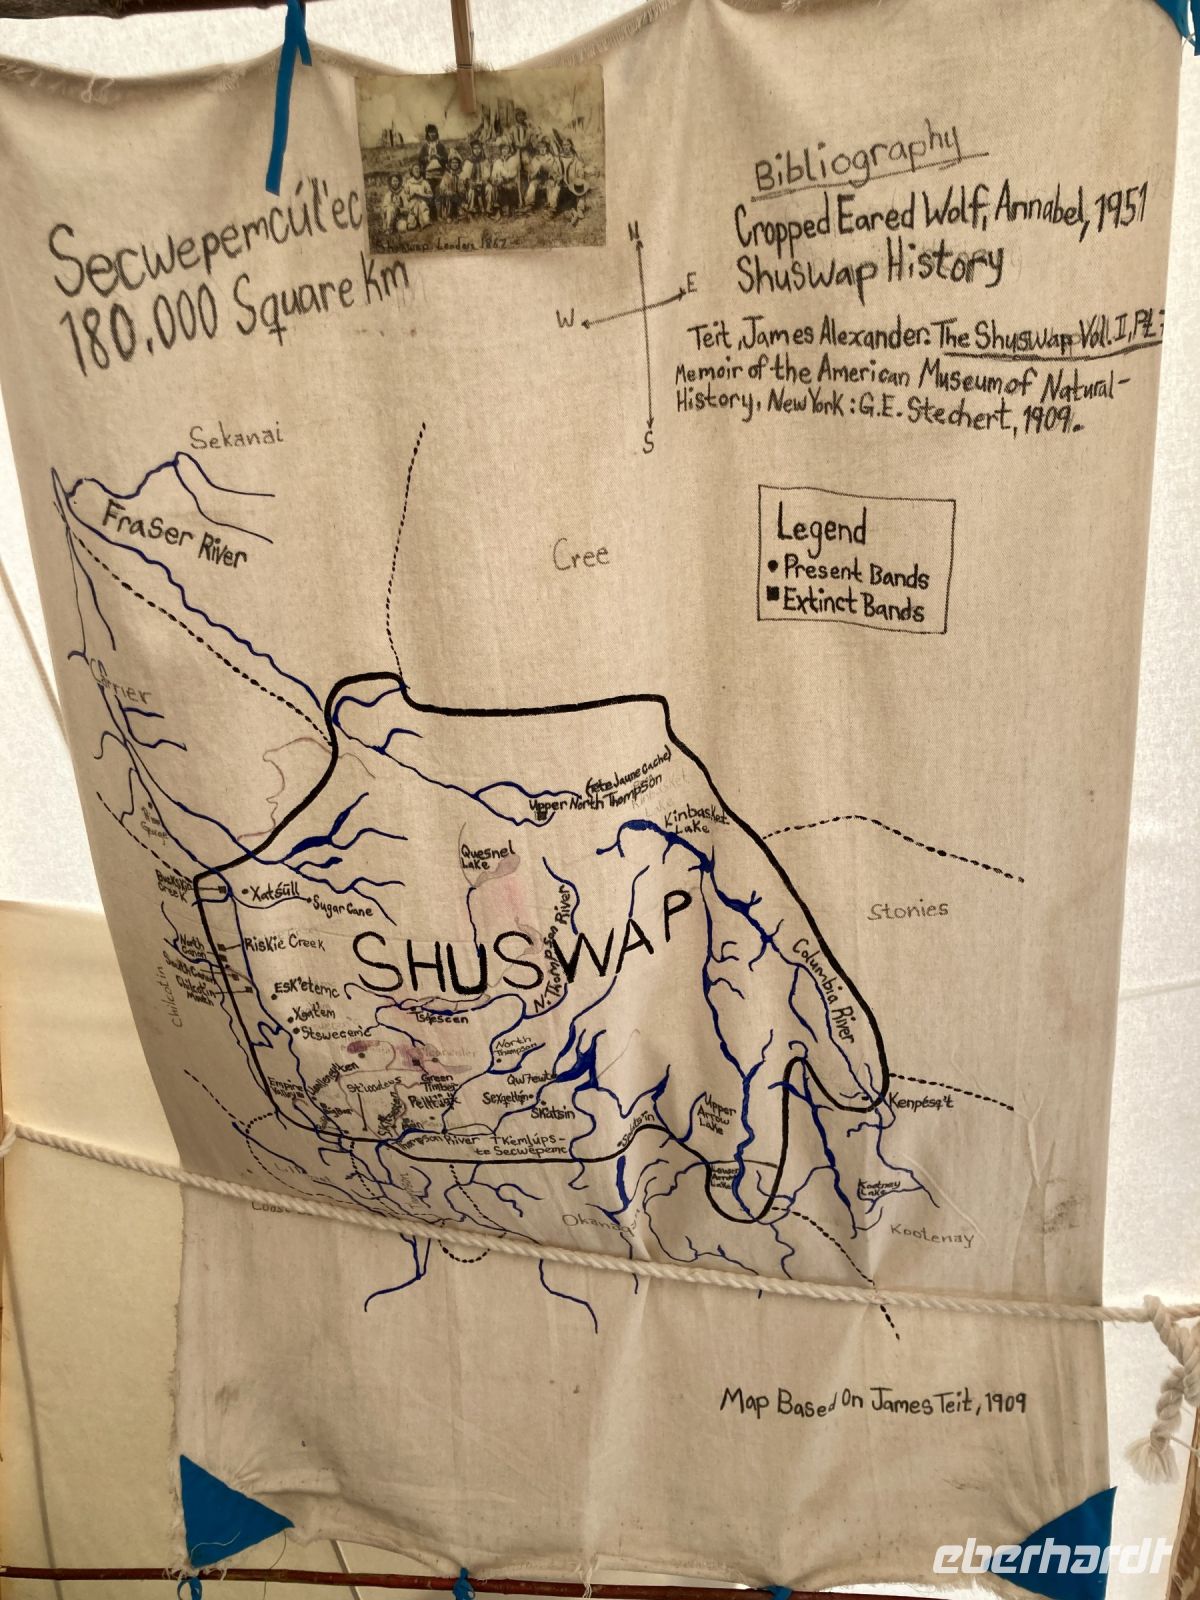 Secwepemcúl'ec
180,000 Square Km
Shuswap Leaders 1867
N
E
W
S
Bibliography
Cropped Eared Wolf, Annabel, 1951
Shuswap History
Teit, James Alexander. The Shuswap Vol. II, Pt.
Memoir of the American Museum of Natural-
History, New York: G.E. Stechert, 1909.
Legend
Present Bands
Extinct Bands
Sekanai
Fraser River
Cree
Carrier
(Tete Jaune Cache)
Upper North Thompson
Kinbasket
Lake
Quesnel
Lake
Creek
Xatśūll
Sugar Cane
Stonies
SHUSWAP
N. Thompson River
Columbia River
Riskie Creek
North
Canon
South Canon
Chilcotin
Mouth
Chilcotin
Esk'etemc
Xgat'em
Stswecemc
Tsq̓escen
North
Thompson
Empire
Valley
Green
Timber
Pelltiq't
Sexqeltqin
Qw7ewt
Skatsin
Upper
Arrow
Lake
Kenpésq't
Thompson River
Tk'emlúps-
te Secwépemc
Lower
Arrow
Lake
Kootney
Lake
Okanagan
Kootenay
Map Based On James Teit, 1909
eberhardt